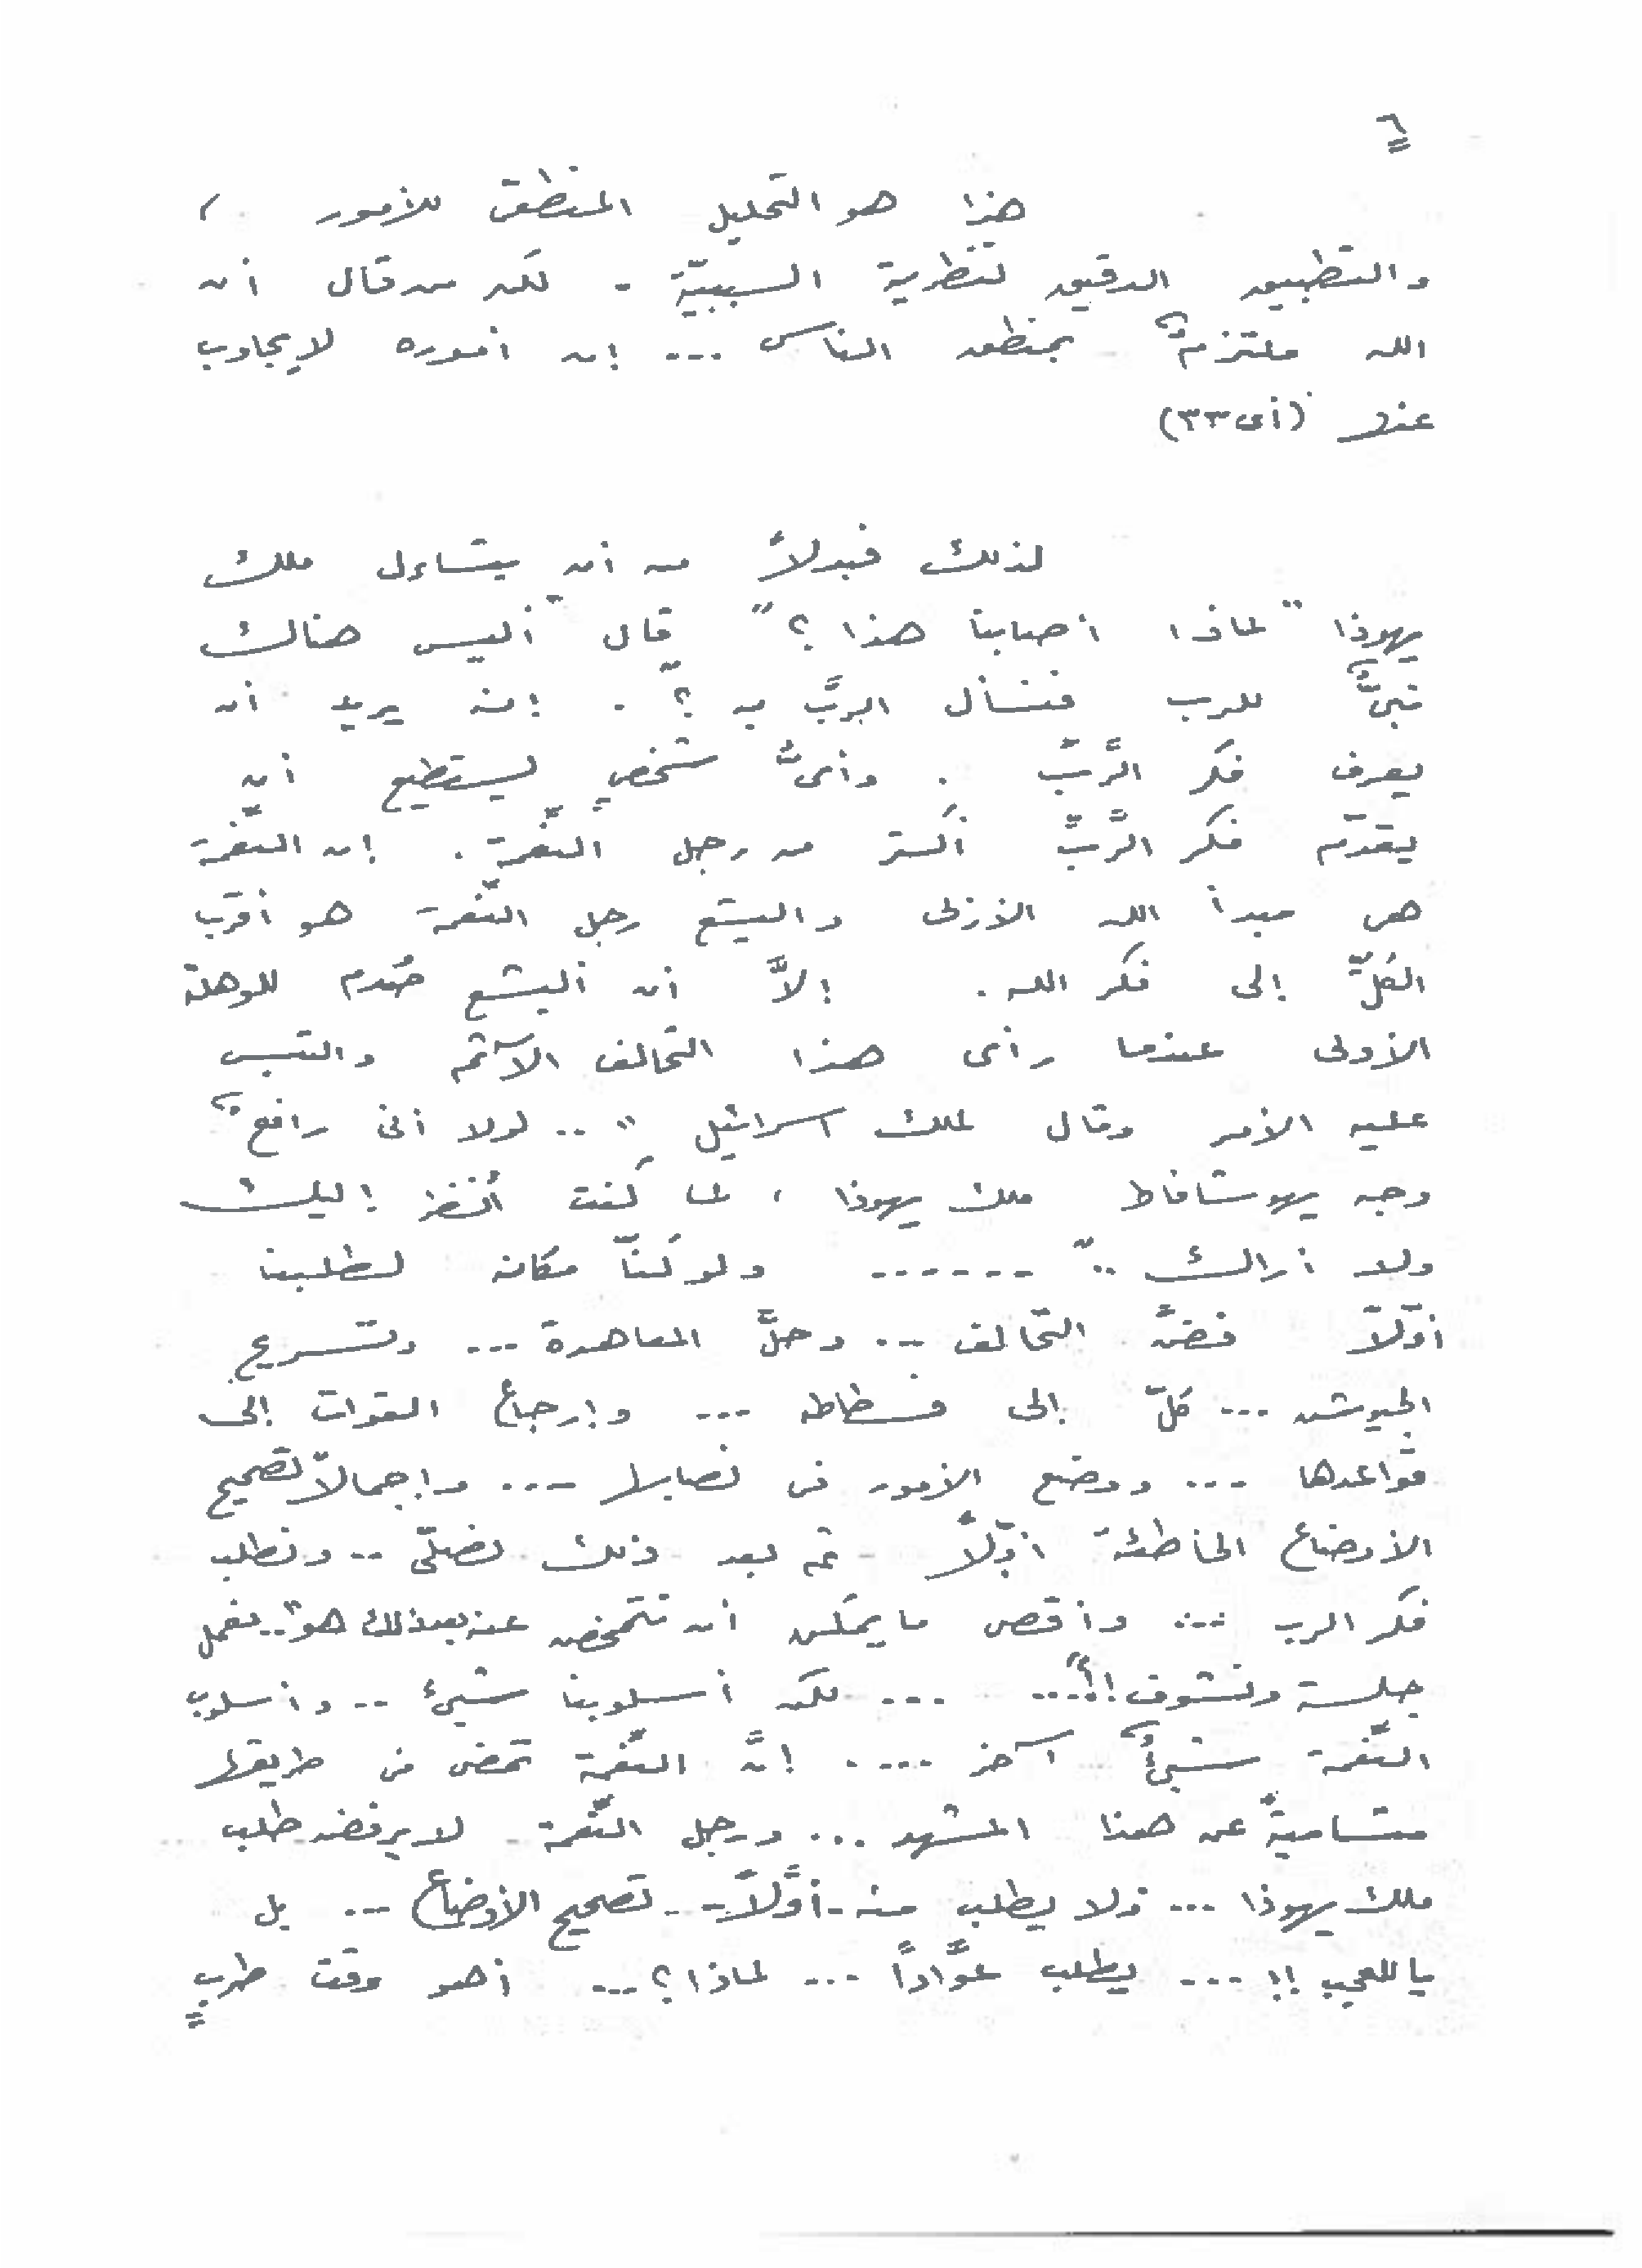 ٦
هذا هو التحليل المنطقى للأمور ،
والتطبيق الدقيق لنظرية السببيّة . لكن من قال أن
الله ملتزمٌ بمنطق الناس ... إن أموره لا يجاوب
عنها (أى٣٣)
لذلك فبدلاً من أن يتساءل ملك
يهوذا "لماذا أصابنا هذا ؟" قال "أليس هناك
نبىٌّ للرب فنسأل الربَّ به ؟" . إنه يريد أن
يعرف فكر الرَّبِّ . وأىُّ شخصٍ يستطيع أن
يقدّم فكر الرَّبِّ أكثر من رجل النّعمة . إن النعّمة
هى مبدأ الله الأزلى واليشع رجل النّعمة هو أقرب
الكُلِّ إلى فكر الله . إلاَّ أن أليشع صُدم للوهلة
الأولى عندما رأى هذا التحالف الآثم والتبس
عليه الأمر وقال لملك اسرائيل " .. لولا أنى رافعٌ
وجه يهوشافاط ملك يهوذا ، لما كنت أنظر إليك
ولا أراك .." ...... ولو كنّا مكانه لطلبنا
أوّلاً فضَّ التحالف ... وحلَّ المعاهدة ... وتسريح
الجيوش ... كلّ إلى فسطاطه ... وإرجاع القوات إلى
قواعدها ... ووضع الأمور فى نصابها ... واجمالاً تصحيح
الأوضاع الخاطئة أوّلاً - ثم بعد ذلك نصلّى .. ونطلب
فكر الرب ... وأقصى ما يمكن أن نتمخض عنه بعد ذلك هو "..نعمل
جلسة ونشوف!!"... ... لكن أسلوبنا شيئ .. وأسلوب
النّعمة شيئٌ آخر .... إنَّ النّعمة تمضى فى طريقها
متساميةً عن هذا المشهد ... ورجل النّعمة لا يرفض طلب
ملك يهوذا ... ولا يطلب منه - أوّلاً - تصحيح الأوضاع ... بل
يا للعجب !! ... يطلب عوَّاداً ... لماذا ؟ ... أهو وقت طربٍ